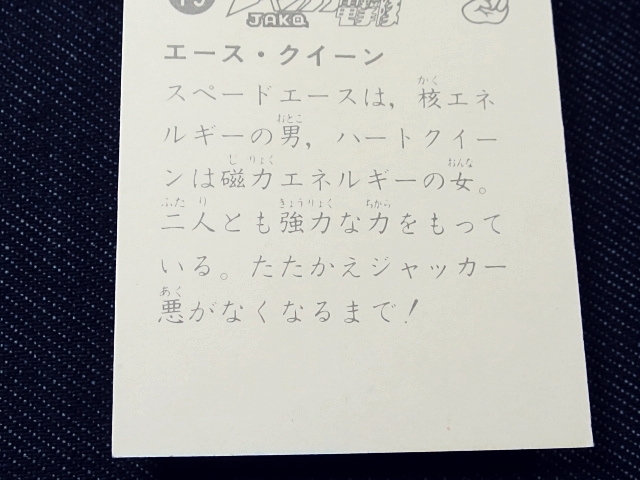 JAKQ
エース・クイーン
スペードエースは，核エネ
ルギーの男，ハートクイー
ンは磁力エネルギーの女。
二人とも強力な力をもって
いる。たたかえジャッカー
悪がなくなるまで！